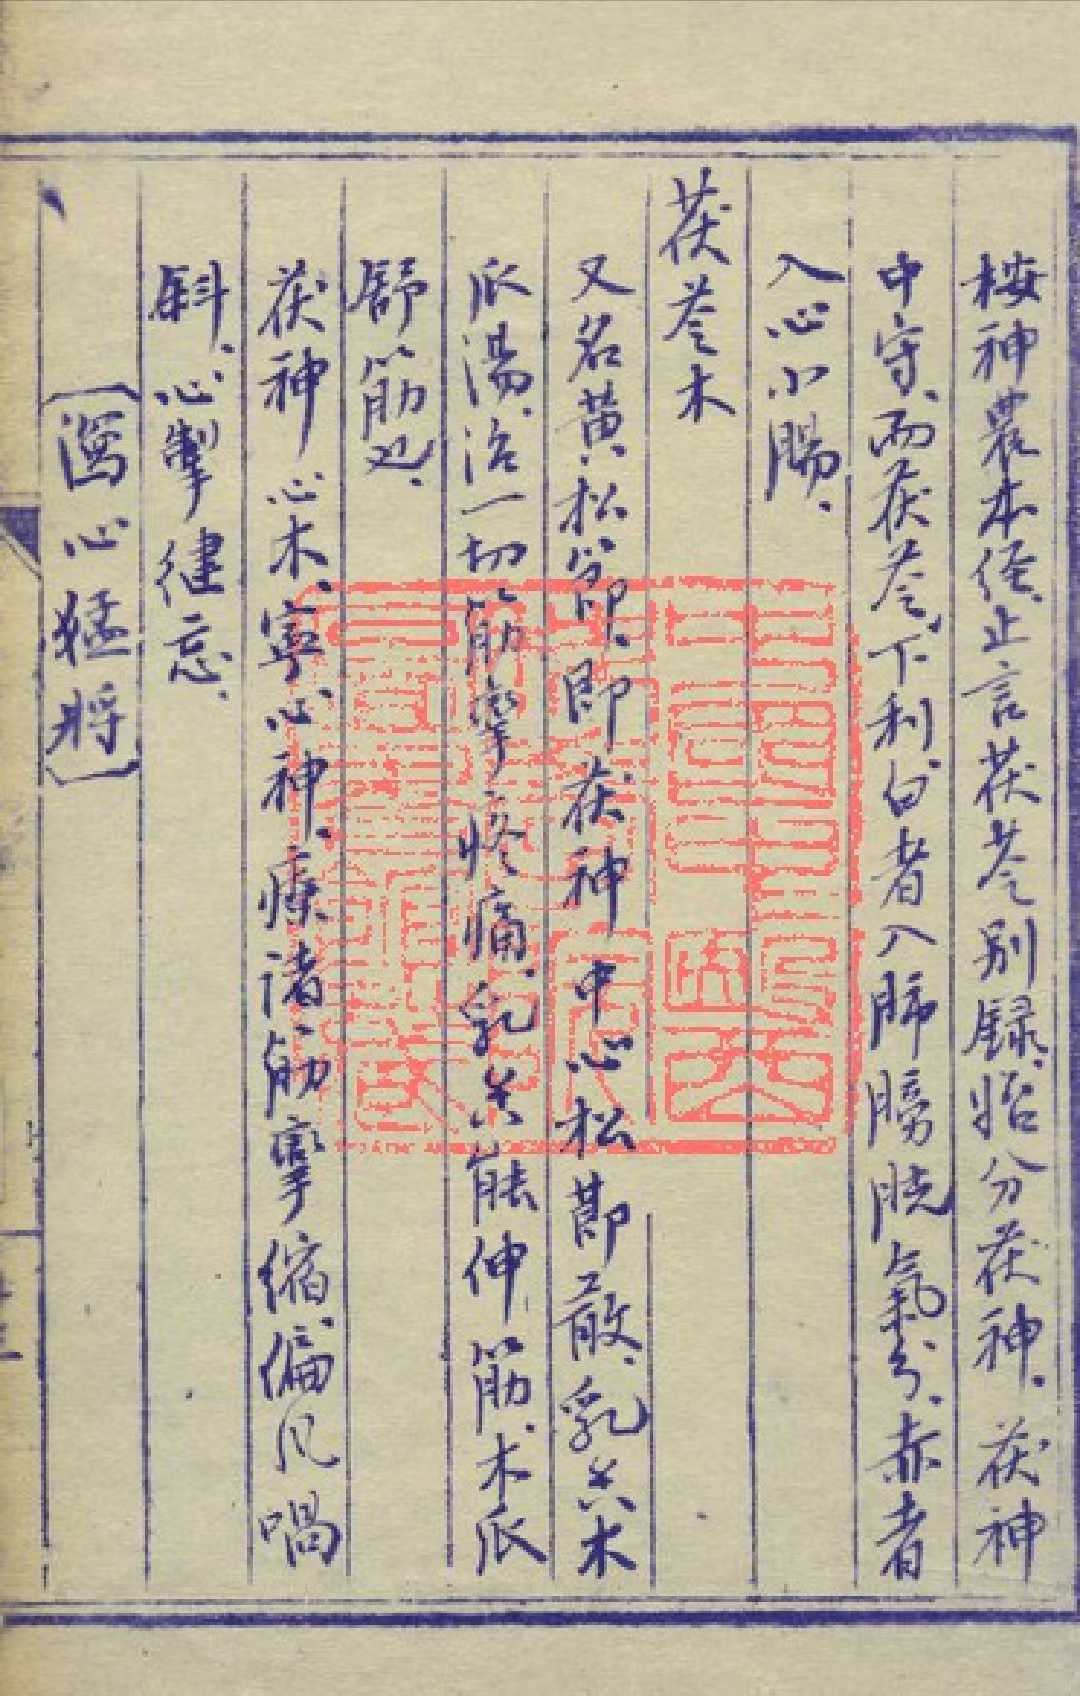 桉神農本经、止言茯苓、别録、始分茯神、茯神
中守、而茯苓、下利、白者入肺膀胱氣分、赤者
入心小腸、
茯苓木
又名黄松節、即茯神中心松節散、乳香木
瓜湯、治一切筋攣疼痛、乳香能伸筋、木瓜
舒筋也、
茯神心木、寧心神、療諸筋攣缩、偏风喎
斜、心掣健忘、
〔瀉心猛将〕